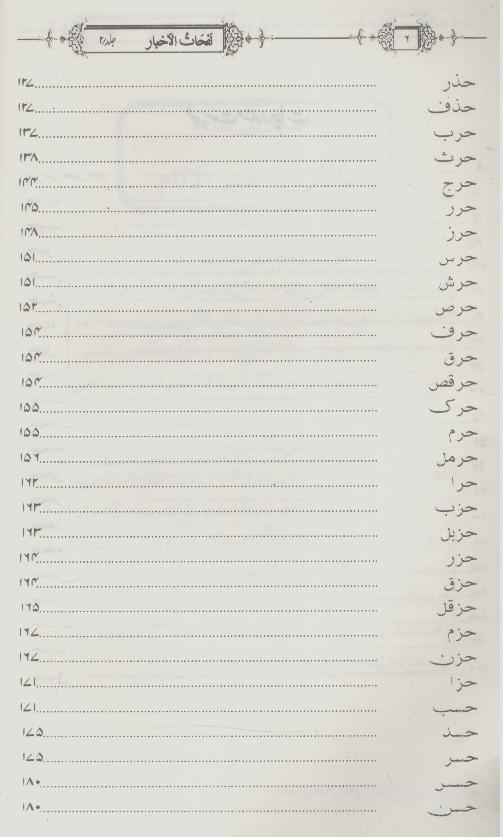 ۲ نَفَحَاتُ الأَخبار جلد/۲
حذر ۱۳۷
حذف ۱۳۷
حرب ۱۳۷
حرث ۱۳۸
حرج ۱۴۴
حرر ۱۴۵
حرز ۱۴۸
حرس ۱۵۱
حرش ۱۵۱
حرص ۱۵۲
حرف ۱۵۴
حرق ۱۵۴
حرقص ۱۵۴
حرک ۱۵۵
حرم ۱۵۵
حرمل ۱۵۶
حرا ۱۶۲
حزب ۱۶۳
حزبل ۱۶۳
حزر ۱۶۴
حزق ۱۶۴
حزقل ۱۶۵
حزم ۱۶۷
حزن ۱۶۷
حزا ۱۷۱
حسب ۱۷۱
حسد ۱۷۵
حسر ۱۷۵
حسس ۱۸۰
حسن ۱۸۰